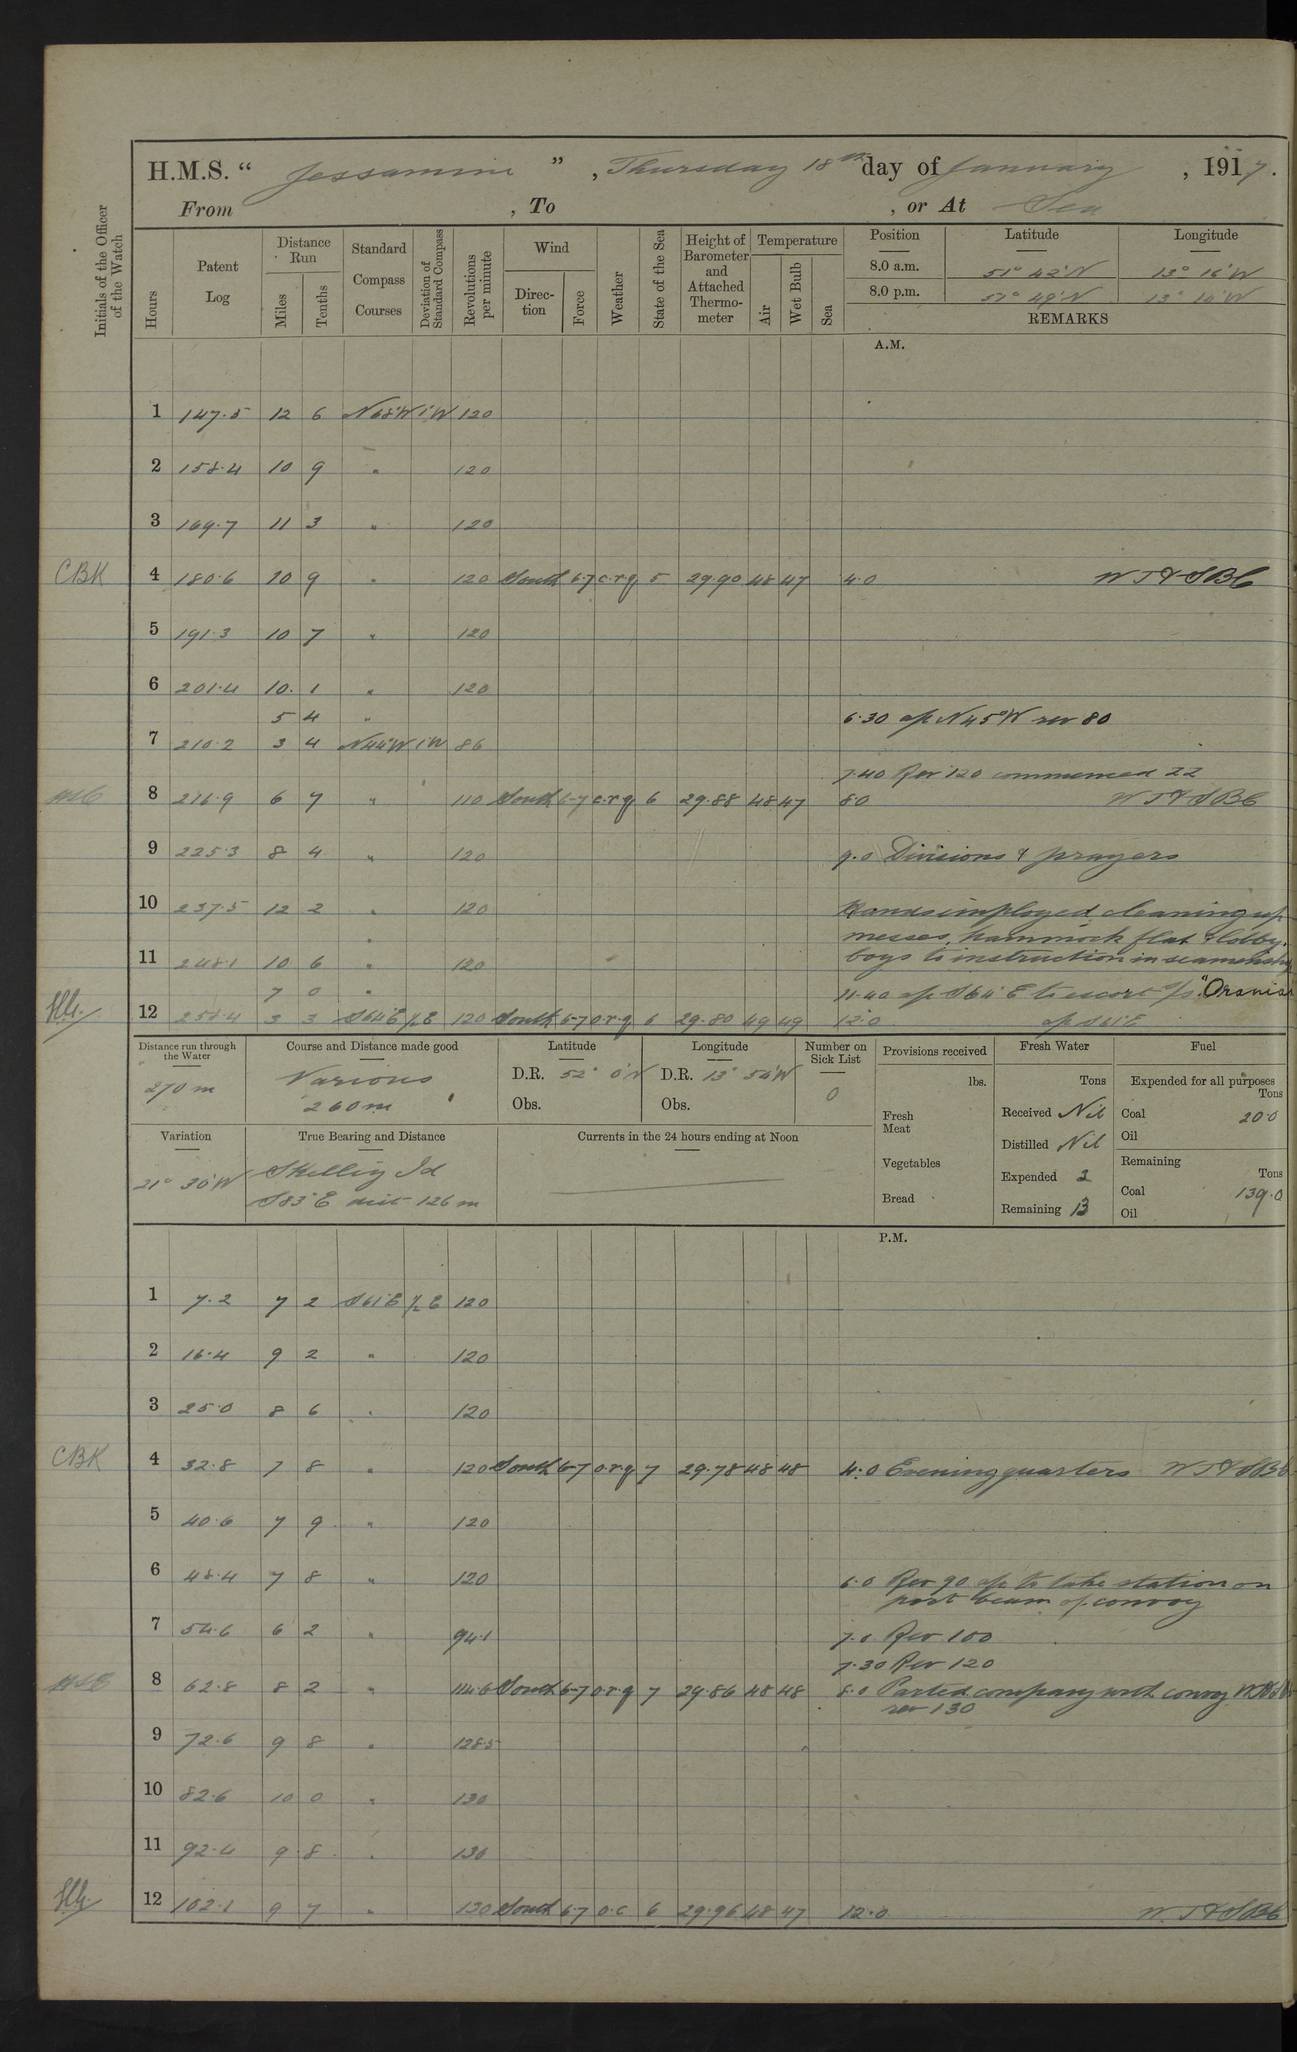 H.M.S. " Jessamine ", Thursday 18th day of January, 1917.
From , To , or At Sea
Initials of the Officer of the Watch
Hours
Patent Log
Distance Run
Miles
Tenths
Standard Compass Courses
Deviation of Standard Compass
Revolutions per minute
Wind
Direction
Force
Weather
State of the Sea
Height of Barometer and Attached Thermometer
Temperature
Air
Wet Bulb
Sea
Position Latitude Longitude
8.0 a.m. 51° 42'N 13° 16'W
8.0 p.m. 13° W
REMARKS
A.M.
1 147.5 12 6 N68°W 1°W 120
2 158.4 10 9 " 120
3 169.7 11 3 " 120
CBK 4 180.6 10 9 " 120 South 6-7 c.r.q 5 29.90 48 47 4.0 W T & SBC
5 191.3 10 7 " 120
6 201.4 10 1 " 120
5 4 " 6.30 a/c N45°W rev 80
7 210.2 3 4 N44°W 1°W 86
7.40 Rev 120 commenced 22
8 216.9 6 7 " 110 South 6-7 c.r.q 6 29.88 48 47 8.0 W T & SBC
9 225.3 8 4 " 120 9.0 Divisions & prayers
10 237.5 12 2 " 120 Hands employed cleaning up
messes, hammock flat & lobby.
11 248.1 10 6 " 120 boys to instruction in seamanship
7 0 " 11.40 a/c S64°E to escort s/s "Orania
12 258.4 3 3 S64°E ½E 120 South 6-7 o.r.q 6 29.80 49 49 12.0 a/c S61°E
Distance run through the Water
270 m
Course and Distance made good
Various
260 m
Latitude
D.R. 52° 0'N
Obs.
Longitude
D.R. 13° 54'W
Obs.
Number on Sick List
0
Provisions received
lbs.
Fresh Meat
Vegetables
Bread
Fresh Water
Tons
Received Nil
Distilled Nil
Expended 2
Remaining 13
Fuel
Expended for all purposes
Tons
Coal 20.0
Oil
Remaining
Tons
Coal 139.0
Oil
Variation
21° 30'W
True Bearing and Distance
Skellig Id
S83°E dist 126 m
Currents in the 24 hours ending at Noon
P.M.
1 7.2 7 2 S61°E ½E 120
2 16.4 9 2 " 120
3 25.0 8 6 " 120
CBK 4 32.8 7 8 " 120 South 6-7 o.r.q 7 29.78 48 48 4.0 Evening quarters W T & SBC
5 40.6 7 9 " 120
6 48.4 7 8 " 120 6.0 Rev 90 a/c to take station on
port beam of convoy
7 54.6 6 2 " 94.1 7.0 Rev 100
7.30 Rev 120
8 62.8 8 2 " 114.6 South 6-7 o.r.q 7 29.86 48 48 8.0 Parted company with convoy
rev 130
9 72.6 9 8 " 128.5
10 82.6 10 0 " 130
11 92.4 9 8 " 130
12 102.1 9 7 " 130 South 6-7 o.c 6 29.96 48 47 12.0 W. T & SBC